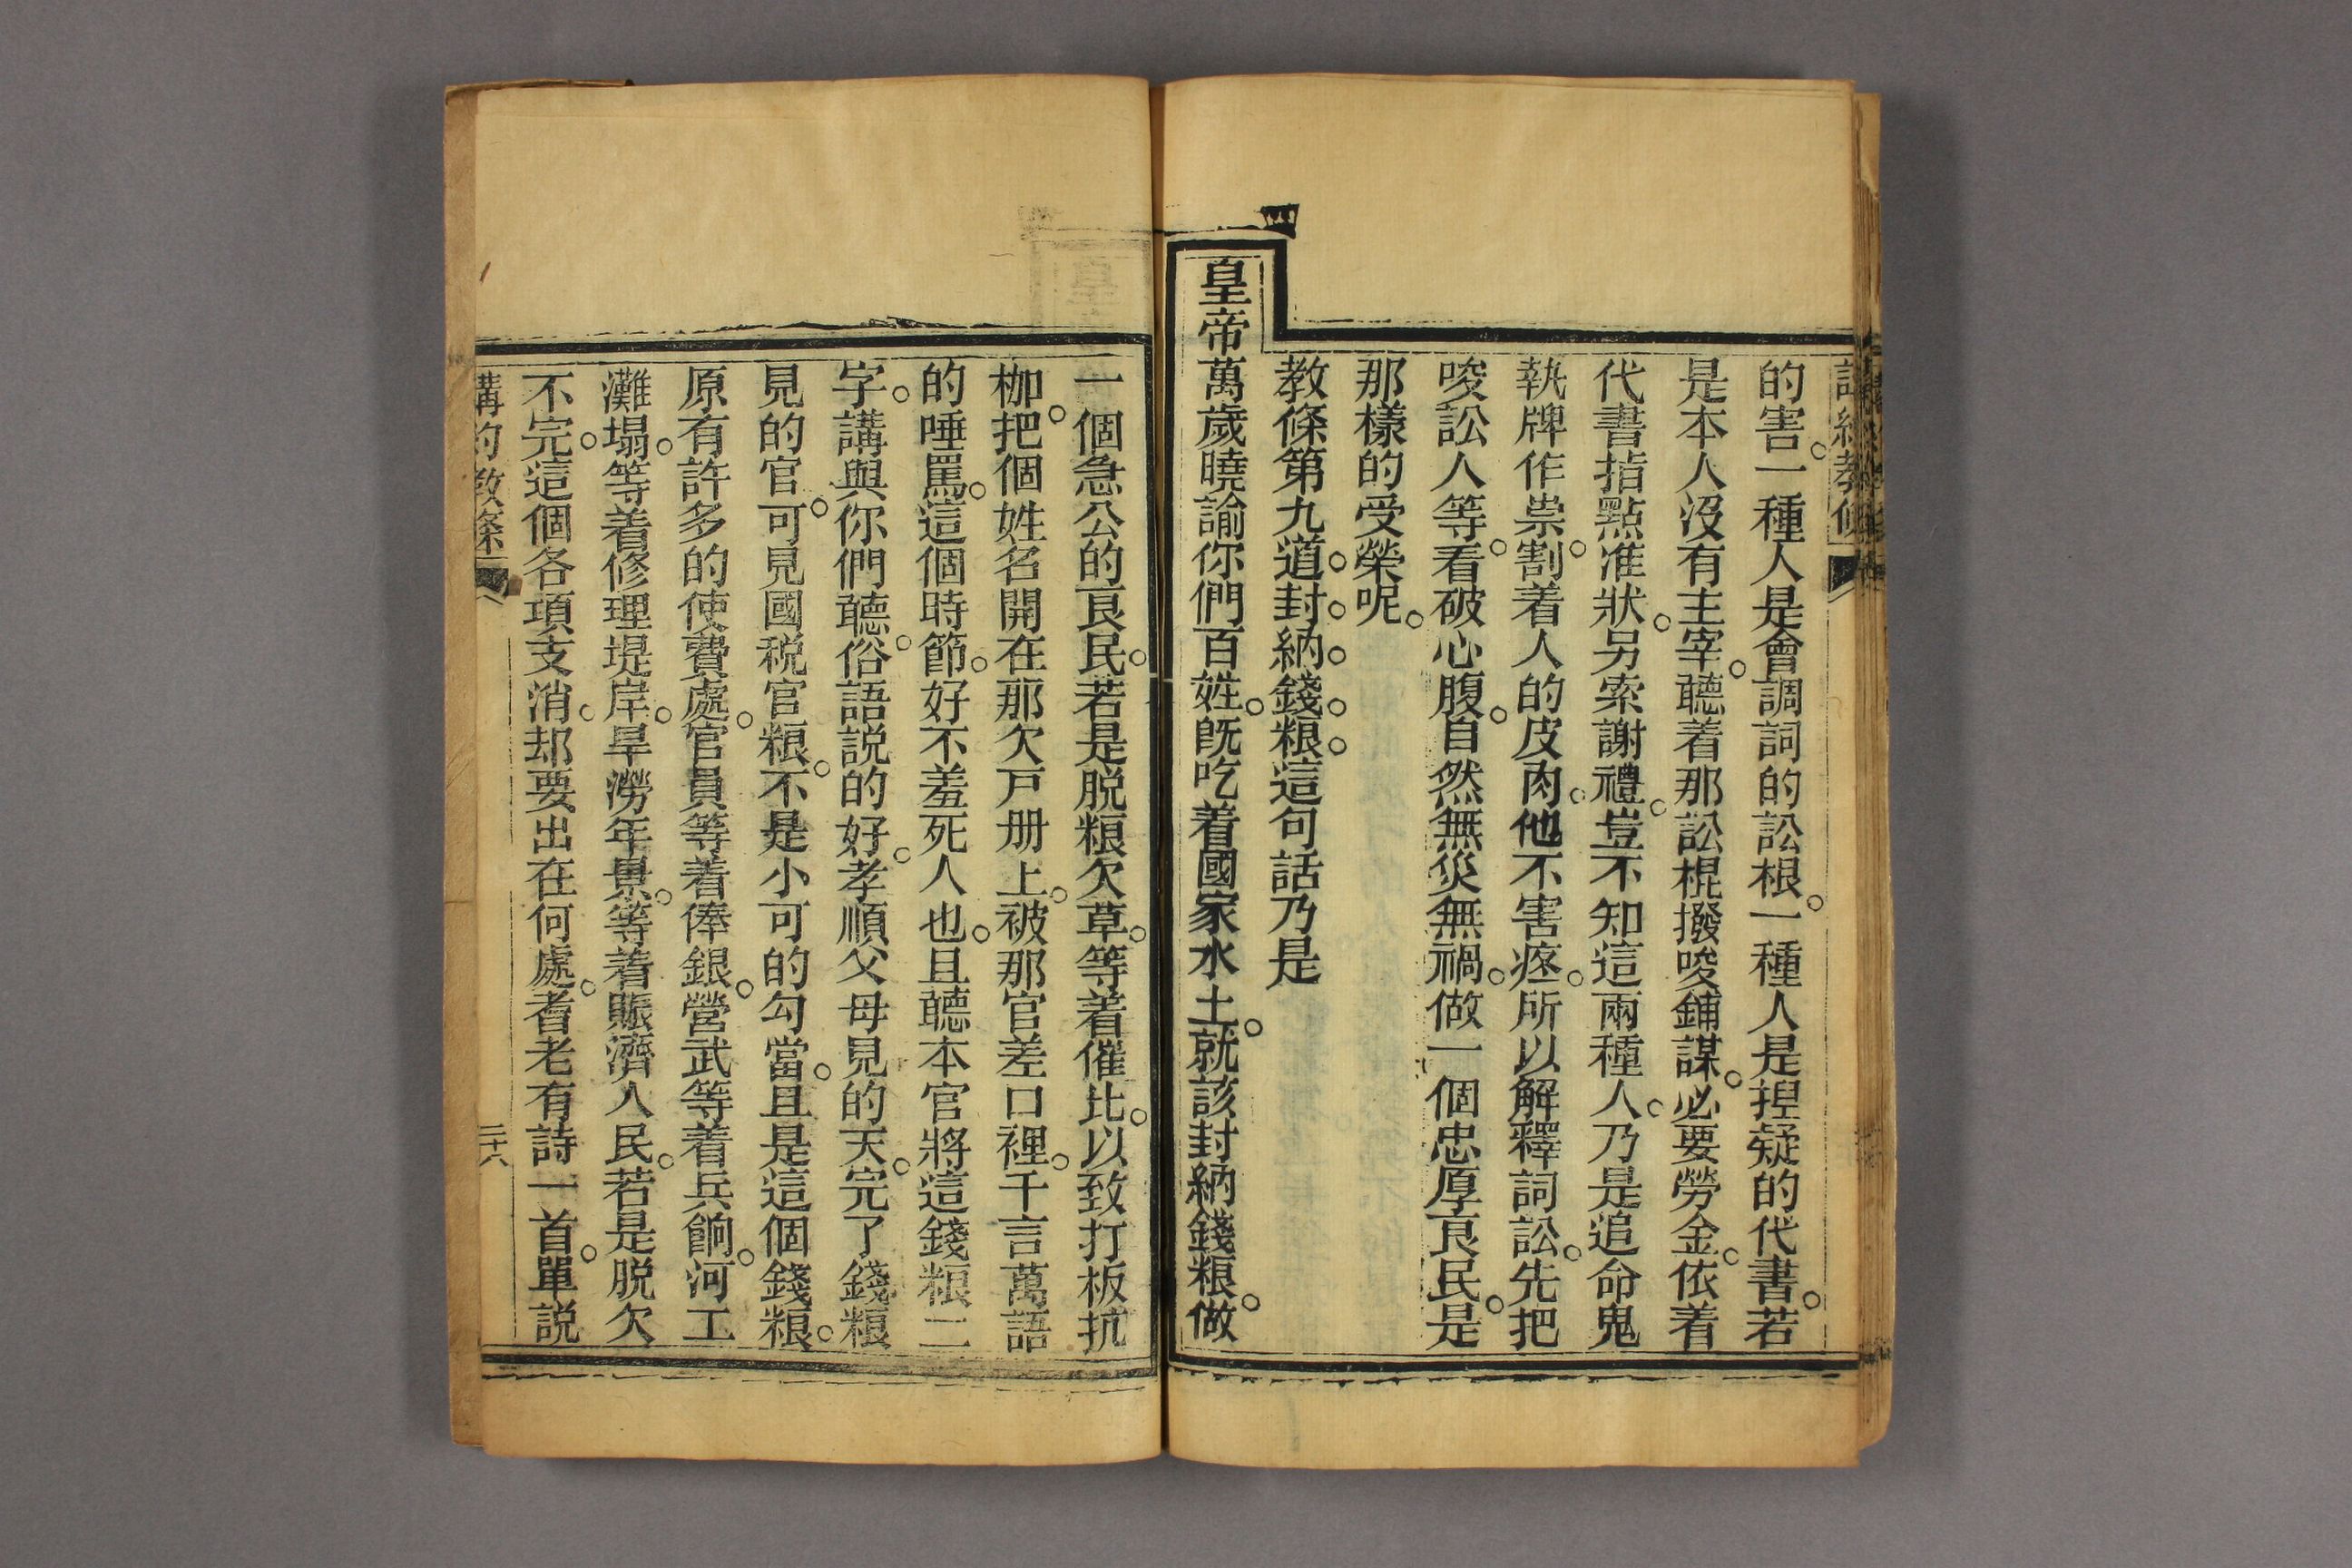 的害。一種人是會調詞的訟根。一種人是揑疑的代書。若
是本人沒有主宰。聽着那訟棍撥唆鋪謀。必要勞金。依着
代書指點准狀。另索謝禮。豈不知這兩種人。乃是追命鬼
執牌作祟。割着人的皮肉。他不害疼。所以解釋詞訟。先把
唆訟人等。看破心腹。自然無災無禍。做一個忠厚良民。是
那樣的受榮呢。
教條第九道。封。納。錢。粮。這句話乃是
皇帝萬歲曉諭你們百姓。旣吃着國家水土。就該封納錢粮。做
一個急公的良民。若是脱粮欠草。等着催比。以致打板抗
枷。把個姓名開在那欠戸册上。被那官差口裡。千言萬語
的唾罵。這個時節。好不羞死人也。且聽本官將這錢粮二
字。講與你們聽。俗語説的好。孝順父母見的天。完了錢粮
見的官。可見國税官粮。不是小可的勾當。且是這個錢粮。
原有許多的使費處。官員等着俸銀。營武等着兵餉。河工
灘塌。等着修理堤岸。旱澇年景。等着賑濟人民。若是脱欠
不完。這個各項支消。却要出在何處。耆老有詩一首。單説
講約教條
二十六